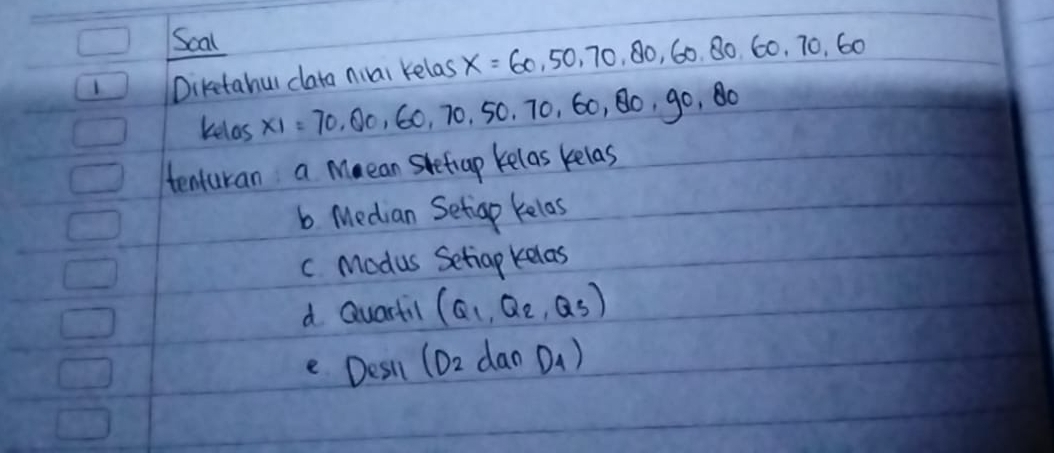 Soal
1 Diketahui data nilai kelas X = 60, 50, 70, 80, 60, 80, 60, 70, 60
kelas XI = 70, 80, 60, 70, 50, 70, 60, 80, 90, 80
tentukan : a Meean Stetiap kelas kelas
b Median Setiap kelas
c Modus Setiap kelas
d Quartil (Q1, Q2, Q3)
e Desil (D2 dan D4)